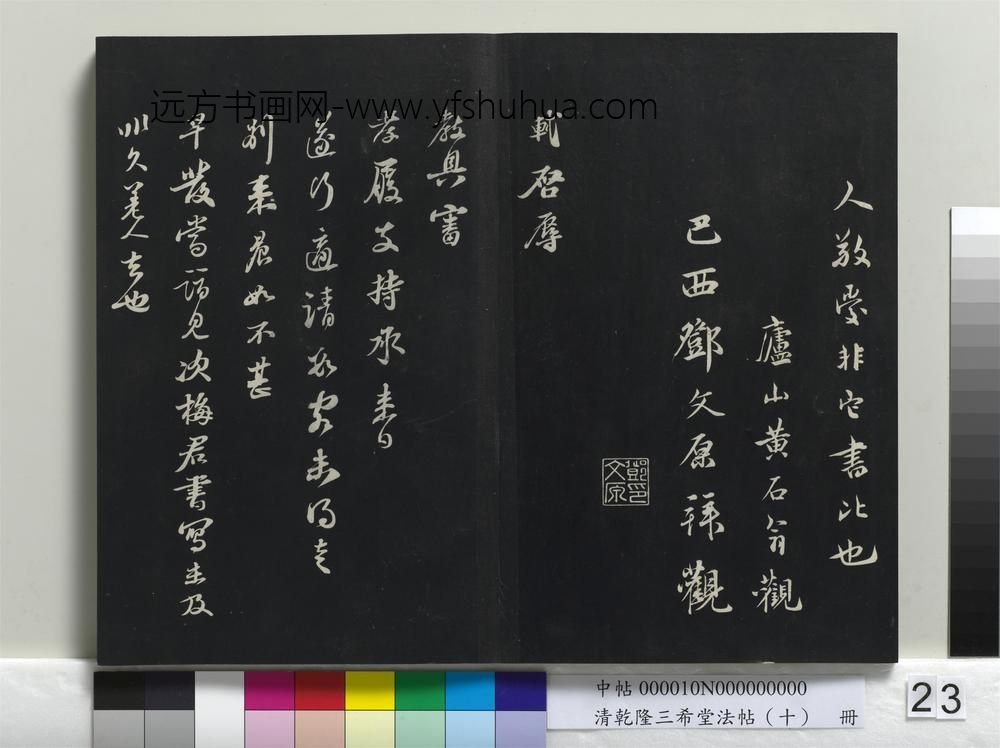 远方书画网-www.yfshuhua.com
人敬愛非它書比也
廬山黄石翁觀
巴西鄧文原拜觀
鄧文原印
軾啓辱
教具審
孝履支持承来日
遂行適請數客未得走
别来晨如不甚
早發當詣見次梅君書寫未及
非久差人去也
中帖 000010N000000000
清乾隆三希堂法帖（十） 冊
23